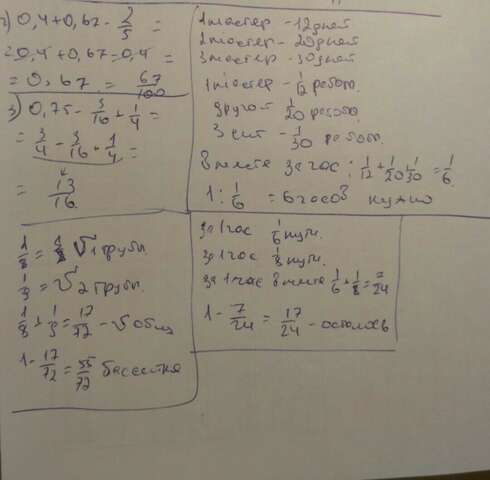 2) 0,4+0,67-2/5=
=0,4+0,67-0,4=
=0,67=67/100
3) 0,75-3/16+1/4=
=3/4-3/16+1/4=
=13/16.
1 мастер - 12 дней
2 мастер - 20 дней
3 мастер - 30 дней
1 мастер - 1/12 работы
другой 1/20 работы.
- 1/30 работы.
вместе за час: 1/12+1/20+1/30=1/6.
1:1/6 =6 часов нужно
1/8= V 1 трубы
1/9=V 2 трубы.
1/8+1/9=17/72-V общ
1-17/72=55/72 бассейна
за 1 час 1/6 пути.
за 1 час 1/8 пути.
за 1 час вместе 1/6+1/8=7/24
1-7/24=17/24-осталось